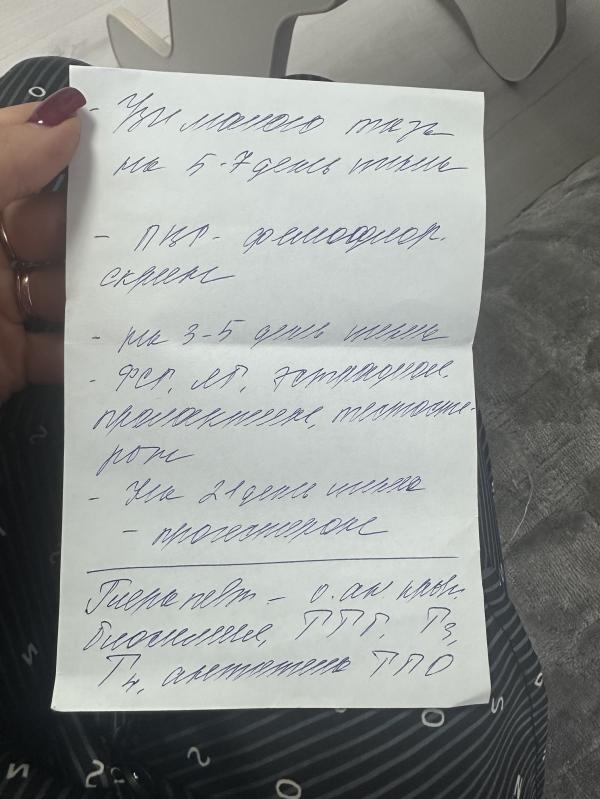 - Узи малого таза
на 5-7 день цикла
- ПЦР - фемофлор.
скрин
- на 3-5 день цикла
- ФСГ, ЛГ, эстрадиол.
пролактин, тестосте-
рон
- На 21 день цикла
- прогестерон
Терапевт - о. ан. крови
биохимия, ТТГ, Т3,
Т4, антитела ТПО